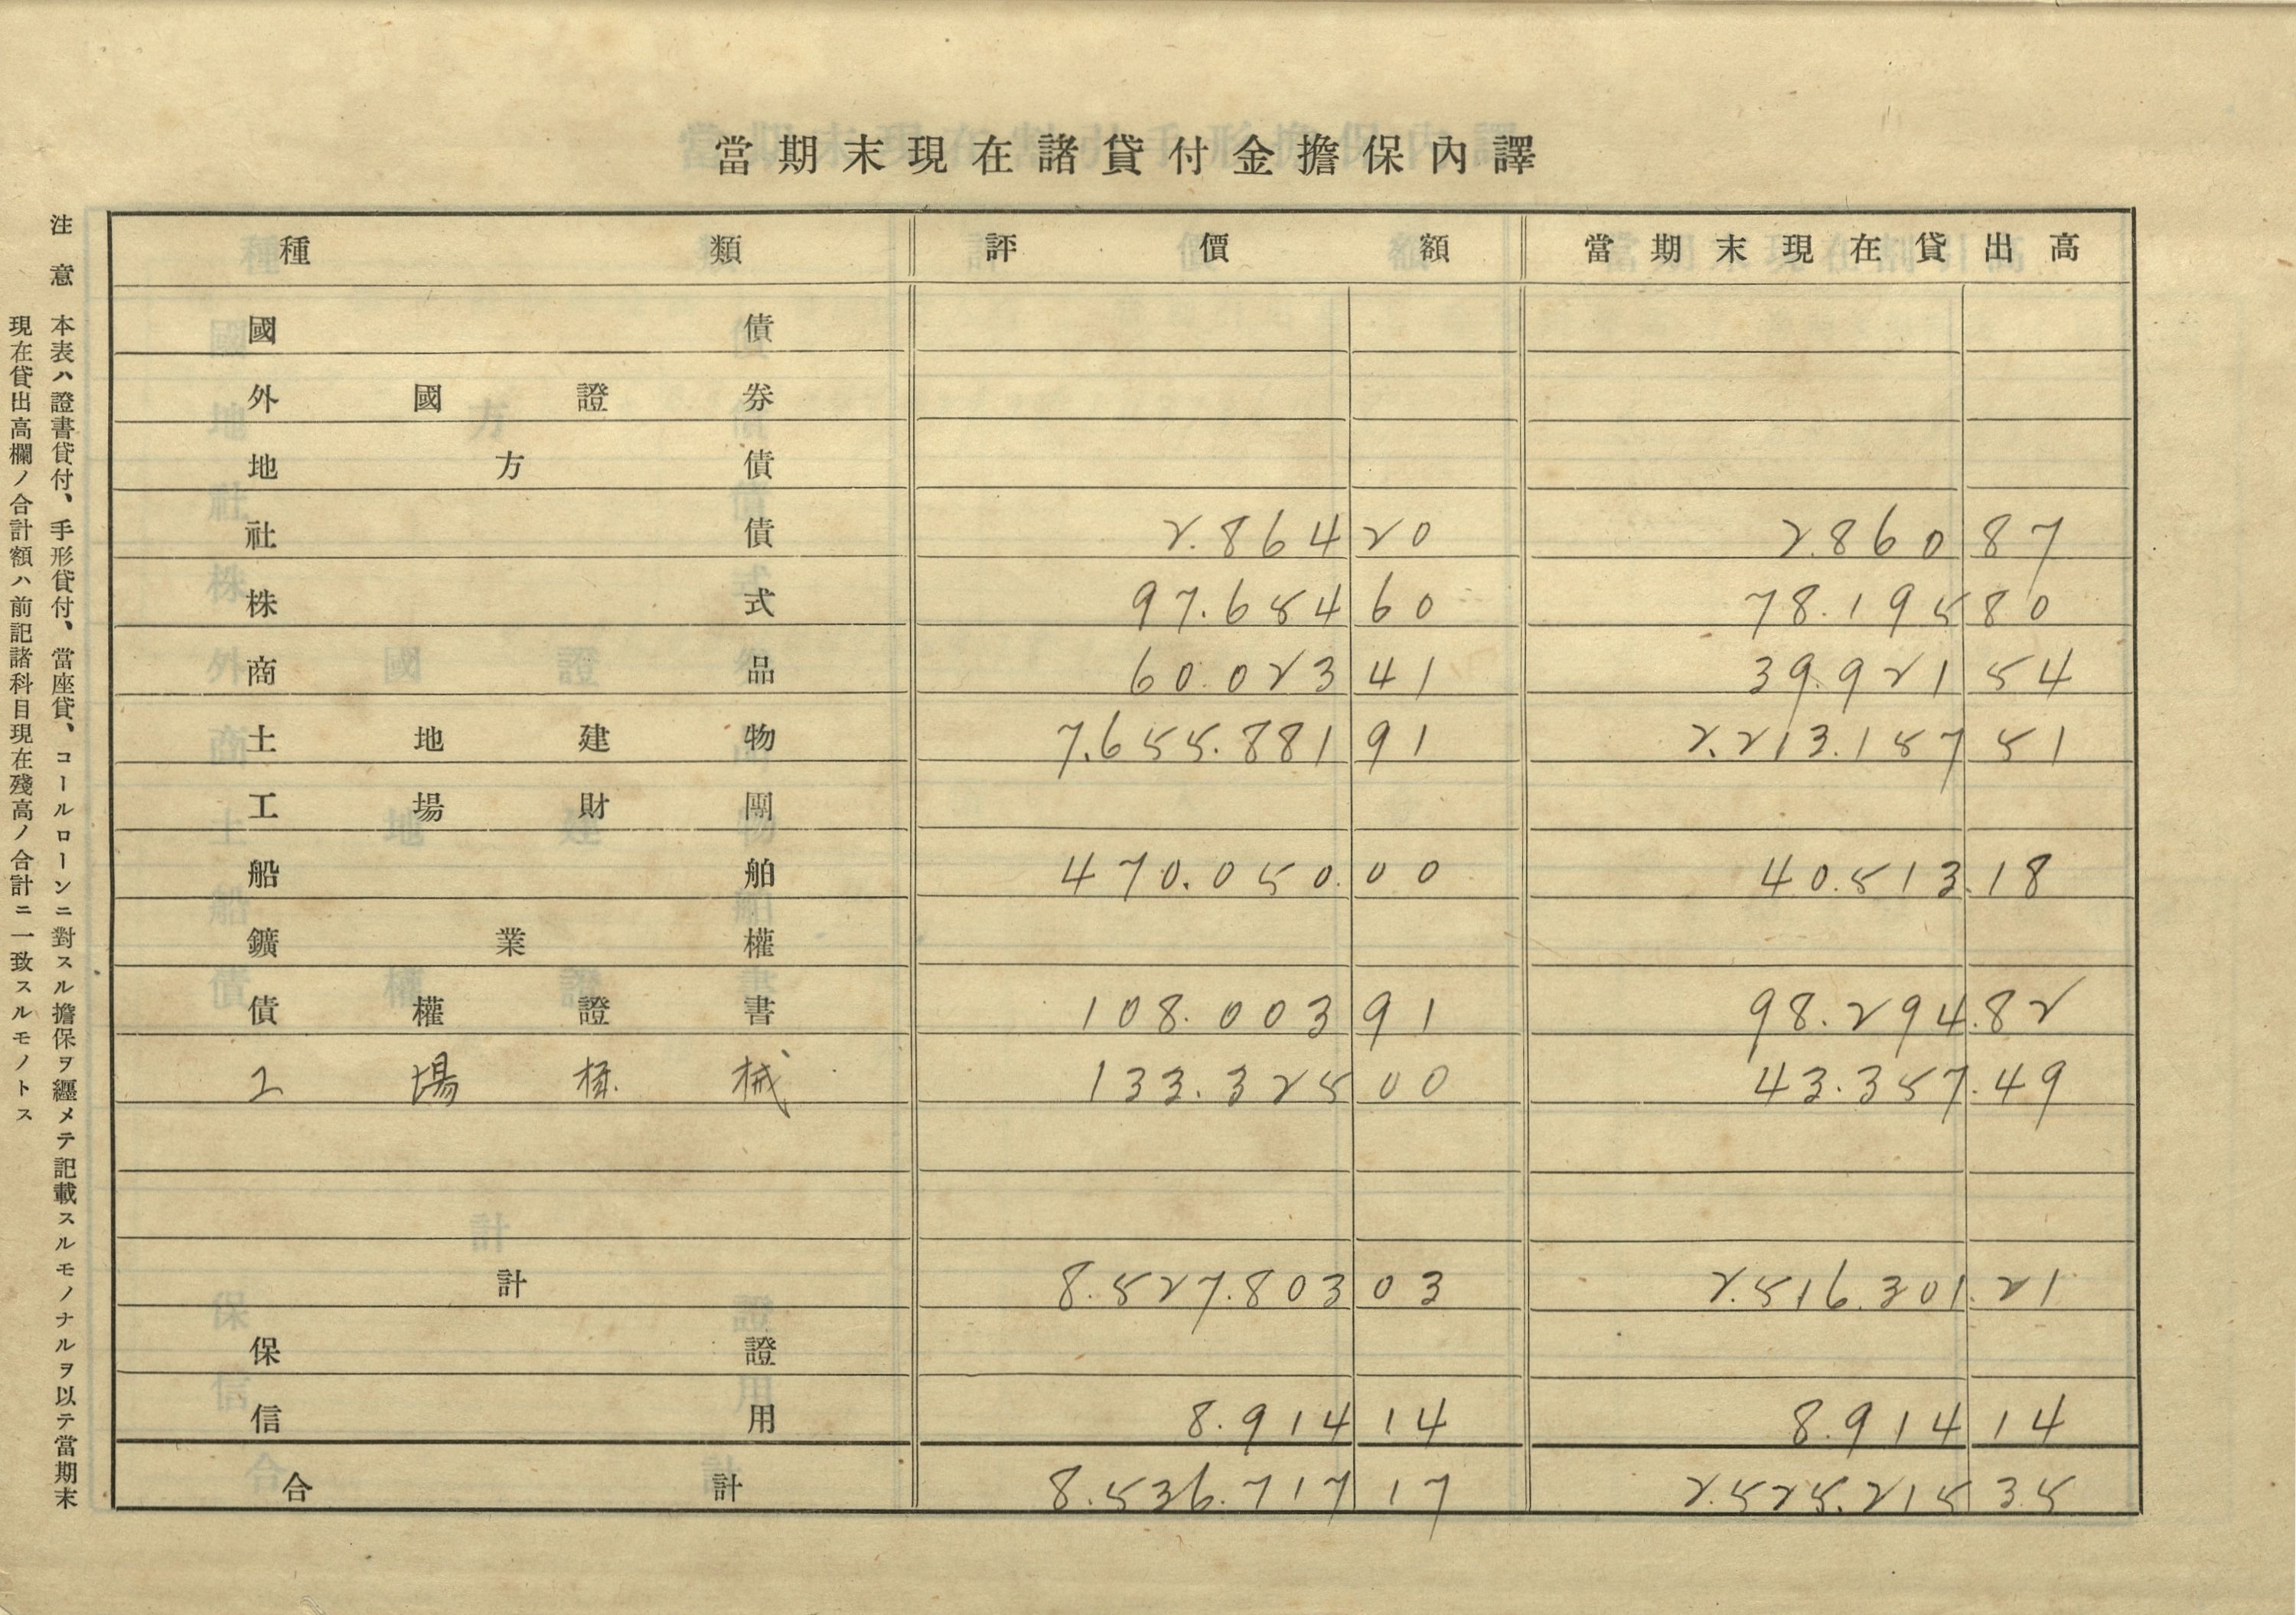 當期末現在諸貸付金擔保內譯
種類 評價額 當期末現在貸出高
國債
外國證券
地方債
社債 2.864 20 2.860 87
株式 97.654 60 78.195 80
商品 60.023 41 39.921 54
土地建物 7.655.881 91 2.213.157 51
工場財團
船舶 470.050. 00 40.513. 18
鑛業權
債權證書 108.003 91 98.294. 82
工場機械 133.325 00 43.357. 49
計 8.527.803 03 2.516.301. 21
保證
信用 8.914 14 8.914 14
合計 8.536.717 17 2.525.215 35
注意 本表ハ證書貸付、手形貸付、當座貸、コールローンニ對スル擔保ヲ纒メテ記載スルモノナルヲ以テ當期末
現在貸出高欄ノ合計額ハ前記諸科目現在殘高ノ合計ニ一致スルモノトス